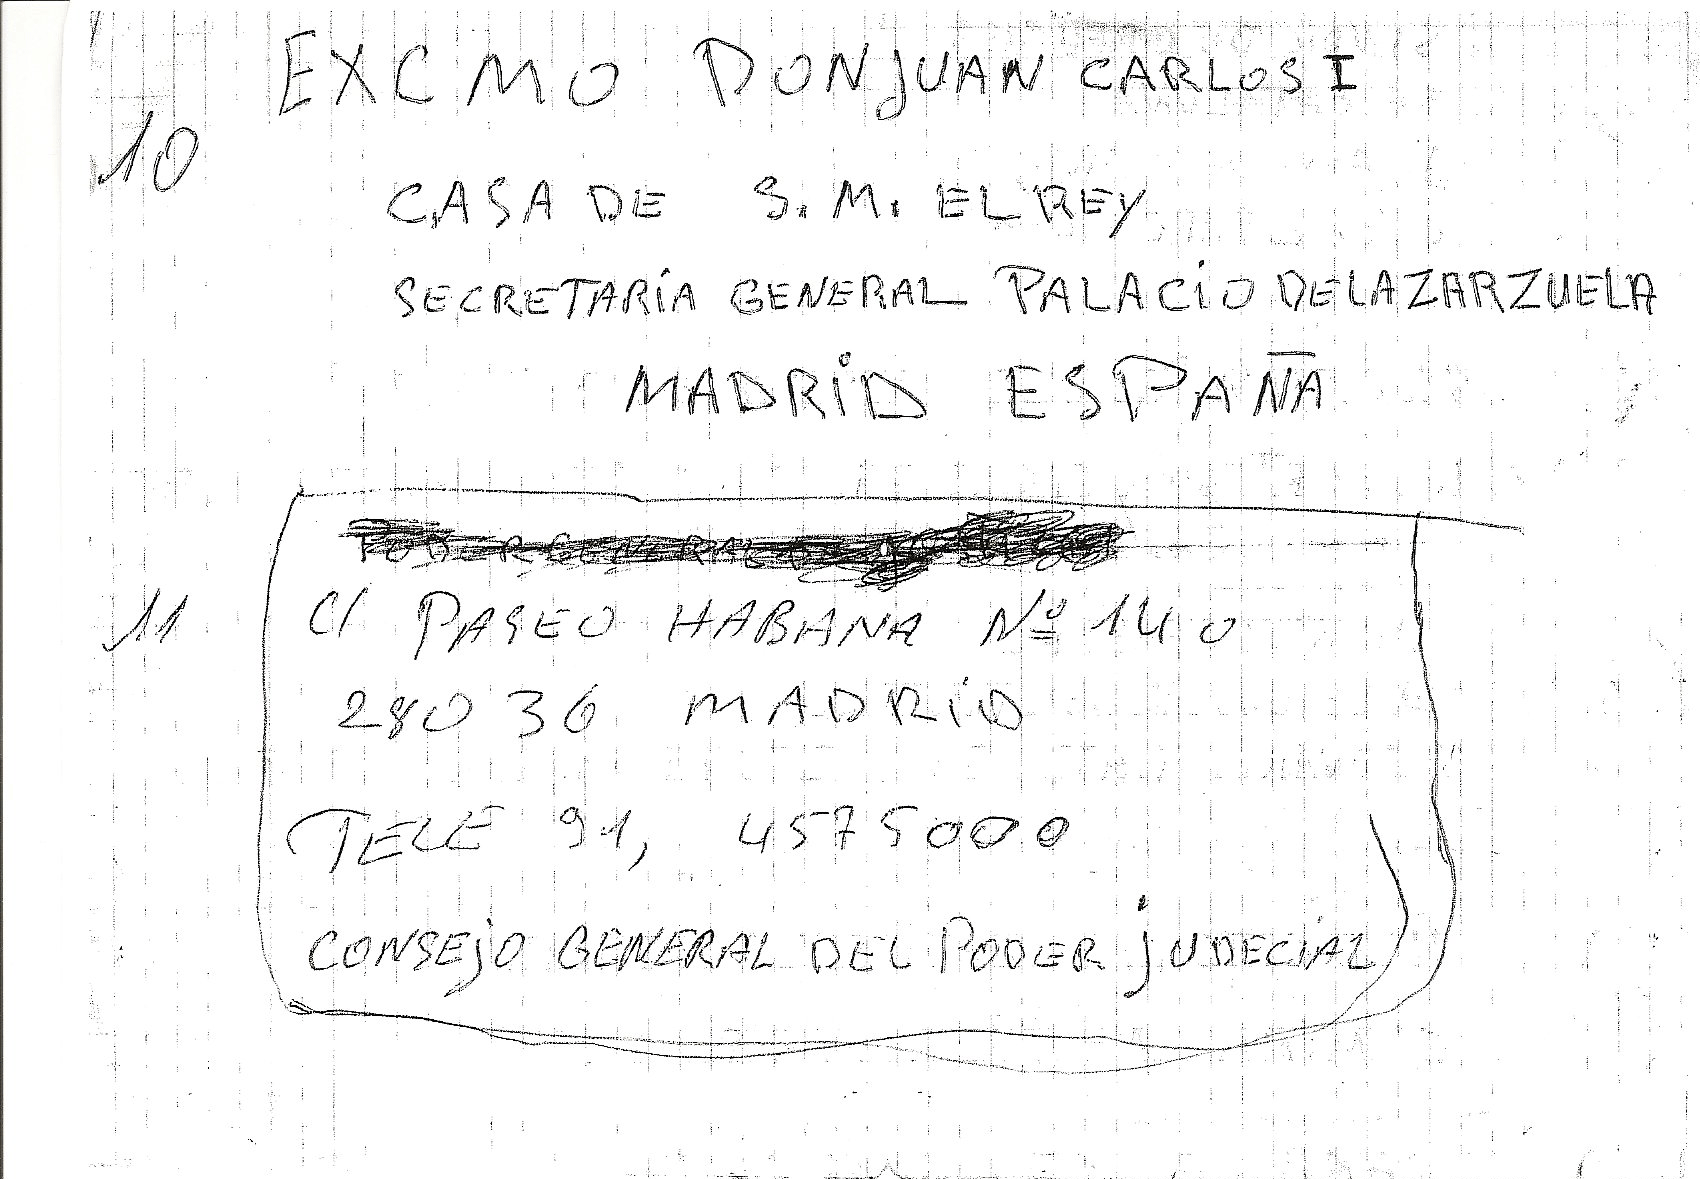 EXCMO DON JUAN CARLOS I
10
CASA DE S.M. EL REY
SECRETARÍA GENERAL PALACIO DE LA ZARZUELA
MADRID ESPAÑA
PODER GENERAL
11 C/ PASEO HABANA Nº 140
28036 MADRID
TELE 91, 4575000
CONSEJO GENERAL DEL PODER JUDECIAL